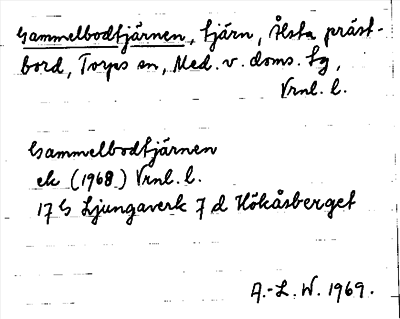 Gammelbodtjärnen, tjärn, Ålsta präst-
bord, Torps sn, Med. v. doms. tg,
Vrnl. l.
Gammelbodtjärnen
ek (1968) Vrnl. l.
17 G Ljungaverk 7 d Hökåsberget
A.-L. W. 1969.